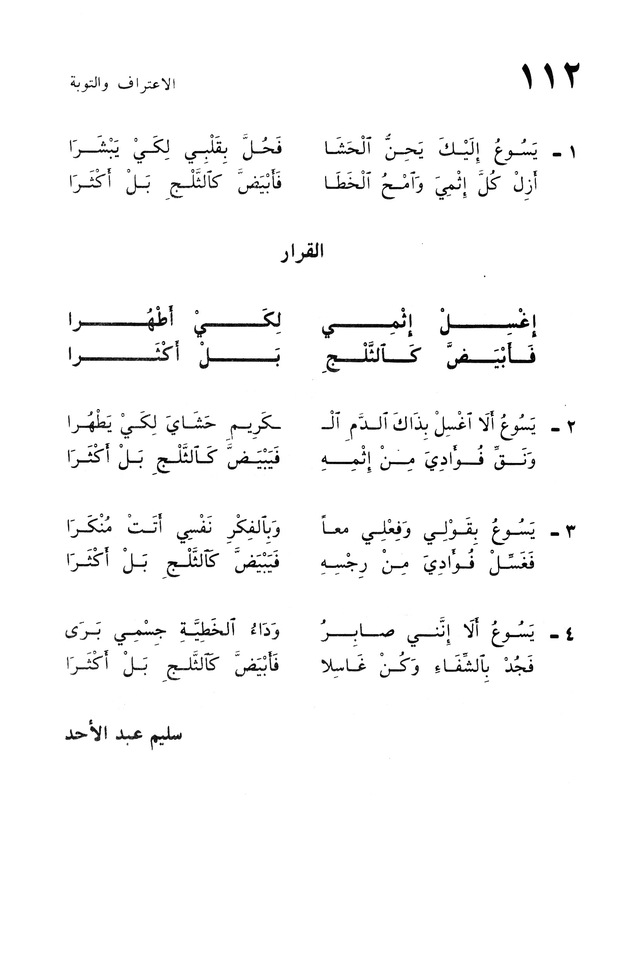 ١١٢
الاعتراف والتوبة
١ ـ يَسُوعُ إِلَيْكَ يَحِنُّ ٱلْحَشَا فَحُلَّ بِقَلْبِي لِكَيْ يَبْشَرَا
أَزِلْ كُلَّ إِثْمِيَ وَٱمْحُ ٱلْخَطَا فَأَبْيَضَّ كَٱلثَّلْجِ بَلْ أَكْثَرَا
القرار
إِغْسِلْ إِثْمِي لِكَيْ أَطْهُرا
فَأَبْيَضَّ كَٱلثَّلْجِ بَلْ أَكْثَرا
٢ ـ يَسُوعُ أَلَا ٱغْسِلْ بِذَاكَ ٱلدَّمِ ٱلْـ ـكَرِيمِ حَشَايَ لِكَيْ يَطْهُرا
وَنَقِّ فُوَادِيَ مِنْ إِثْمِهِ فَيَبْيَضَّ كَٱلثَّلْجِ بَلْ أَكْثَرَا
٣ ـ يَسُوعُ بِقَوْلِي وَفِعْلِي معاً وَبِٱلفِكْرِ نَفْسِي أَتَتْ مُنْكَرَا
فَغَسِّلْ فُوَادِيَ مِنْ رِجْسِهِ فَيَبْيَضَّ كَٱلثَّلْجِ بَلْ أَكْثَرَا
٤ ـ يَسُوعُ أَلَا إِنَّنـي صابِـرُ وَدَاءُ ٱلخَطِيَّةِ جِسْمِي بَرَى
فَجُدْ بِٱلشِّفَاءِ وَكُنْ غَاسِلا فَأَبْيَضَّ كَٱلثَّلْجِ بَلْ أَكْثَرَا
سليم عبد الأحد